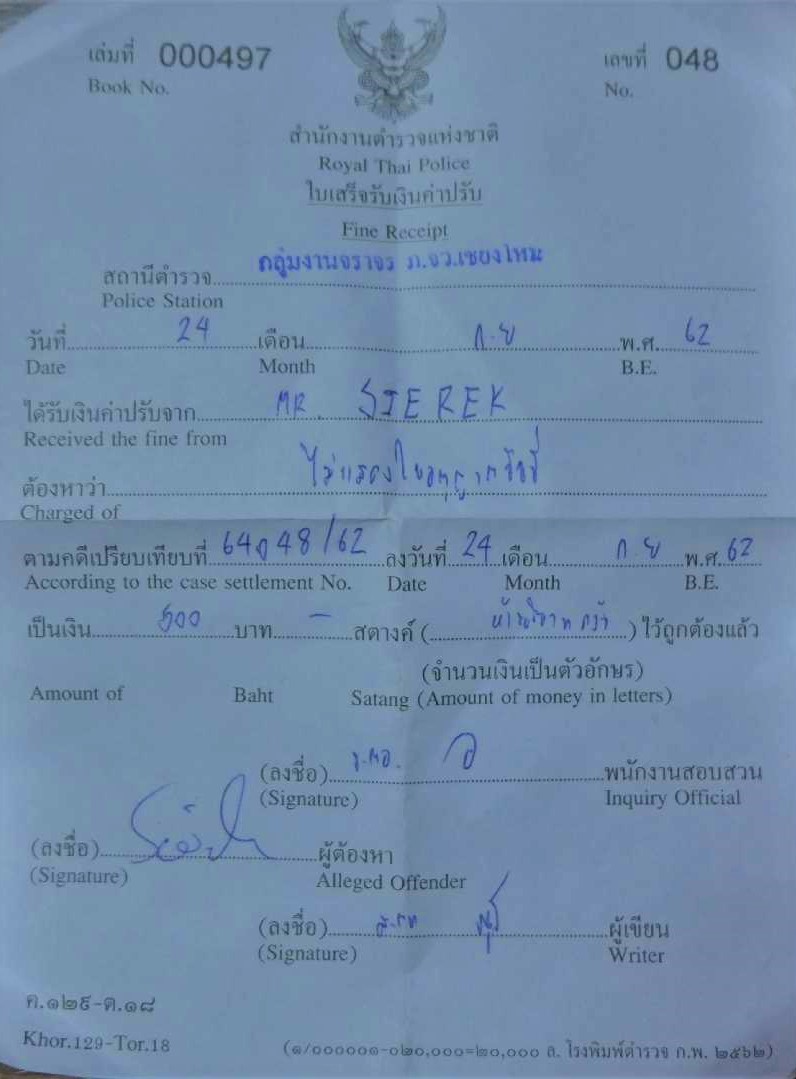 เล่มที่ 000497 เลขที่ 048
Book No. No.
สำนักงานตำรวจแห่งชาติ
Royal Thai Police
ใบเสร็จรับเงินค่าปรับ
Fine Receipt
สถานีตำรวจ กลุ่มงานจราจร ภ.จว.เชียงใหม่
Police Station
วันที่ 24 เดือน ก.ย พ.ศ. 62
Date Month B.E.
ได้รับเงินค่าปรับจาก MR. SIEREK
Received the fine from
ต้องหาว่า ไม่แสดงใบอนุญาตขับขี่
Charged of
ตามคดีเปรียบเทียบที่ 64048/62 ลงวันที่ 24 เดือน ก ย พ.ศ. 62
According to the case settlement No. Date Month B.E.
เป็นเงิน 500 บาท - สตางค์ ( ห้าร้อยบาท ) ไว้ถูกต้องแล้ว
(จำนวนเงินเป็นตัวอักษร)
Amount of Baht Satang (Amount of money in letters)
(ลงชื่อ) พนักงานสอบสวน
(Signature) Inquiry Official
(ลงชื่อ) ผู้ต้องหา
(Signature) Alleged Offender
(ลงชื่อ) ผู้เขียน
(Signature) Writer
ค.๑๒๙-ต.๑๘
Khor.129-Tor.18 (๑/๐๐๐๐๐๑-๐๒๐,๐๐๐=๒๐,๐๐๐ ล. โรงพิมพ์ตำรวจ ก.พ. ๒๕๖๒)